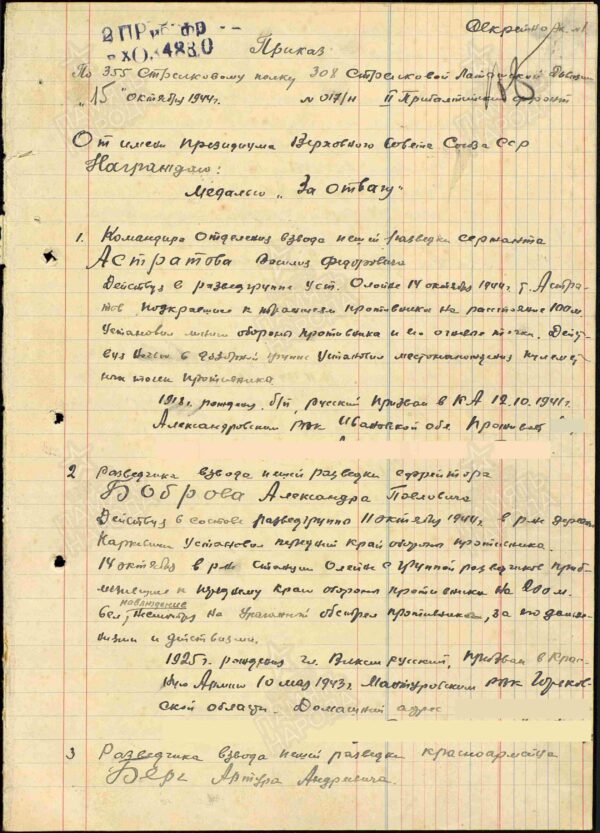 2 ПРИБ ФР
ВХОД 4880
Секретно
Приказ
По 355 Стрелковому полку 308 Стрелковой Латышской Дивизии
"15" октября 1944г. № 017/н II Прибалтийский фронт
От имени Президиума Верховного Совета Союза ССР
Награждаю:
Медалью "За отвагу"
1. Командира отделения взвода пешей разведки сержанта
Астратова Василия Федоровича
Действуя в разведгруппе у ст. Олайне 14 октября 1944г. т. Астра-
тов подкравшись к траншеям противника на расстояние 100м.
установил линию обороны противника и его огневые точки. Дейст-
вуя ночью в группе установил местонахождения пулемет-
ных точек противника.
1918г. рождения, б/п, русский призван в КА 12.10.1941г.
Александровским РВК Ивановской обл.
2 Разведчика взвода пешей разведки ефрейтора
Боброва Александра Павловича
Действуя в составе разведгруппы 11 октября 1944г. в р-не деревни
установил передний край обороны противника.
14 октября в р-не станции Олайне с группой разведчиков приб-
лизившись к переднему краю обороны противника на 200м.
наблюдение
вел, несмотря на обстрел противника, за его
и действиями.
1925г. рождения чл. ВЛКСМ русский, призван в Крас-
ную Армию 10 мая 1943г. Мантуровским РВК Горьков-
ской области. Домашний адрес
3 Разведчика взвода пешей разведки красноармейца
Берг Артура Андреевича.